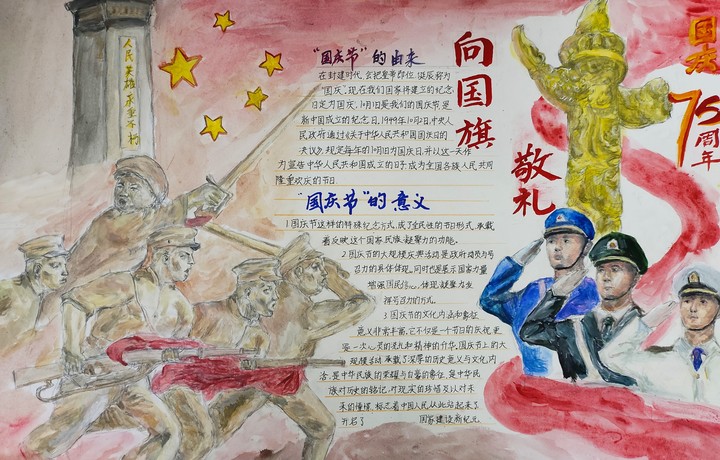 人民英雄永垂不朽
"国庆节"的由来
在封建时代,会把皇帝即位、诞辰称为
"国庆"。现在我们国家将建立的纪念
日定为国庆,10月1日是我们的国庆节,是
新中国成立的纪念日。1949年10月2日,中央人
民政府通过《关于中华人民共和国国庆日的
决议》,规定每年的10月1日为国庆日,并以这一天作
为宣告中华人民共和国成立的日子,成为全国各族人民共同
隆重欢庆的节日.
"国庆节"的意义
1.国庆节这样的特殊纪念方式,成了全民性的节日形式,承载
着反映这个国家、民族、凝聚力的功能。
2.国庆节的大规模庆典活动是政府动员与号
召力的具体体现,同时也是显示国家力量
增强国民信心,体现凝聚力,发
挥号召力的方式。
3.国庆节的文化内涵和象征
意义非常丰富,它不仅是一个节日的庆祝,更
是一次心灵的洗礼和精神的升华。国庆节上的大
规模活动,承载了深厚的历史意义与文化内
涵,是中华民族的荣耀与自豪的象征,是中华民
族对历史的铭记,对现实的珍惜及以对未
来的憧憬,标志着中国人民从此站起来了
开启了 国家建设新纪元
向国旗
敬礼
国庆
75周年